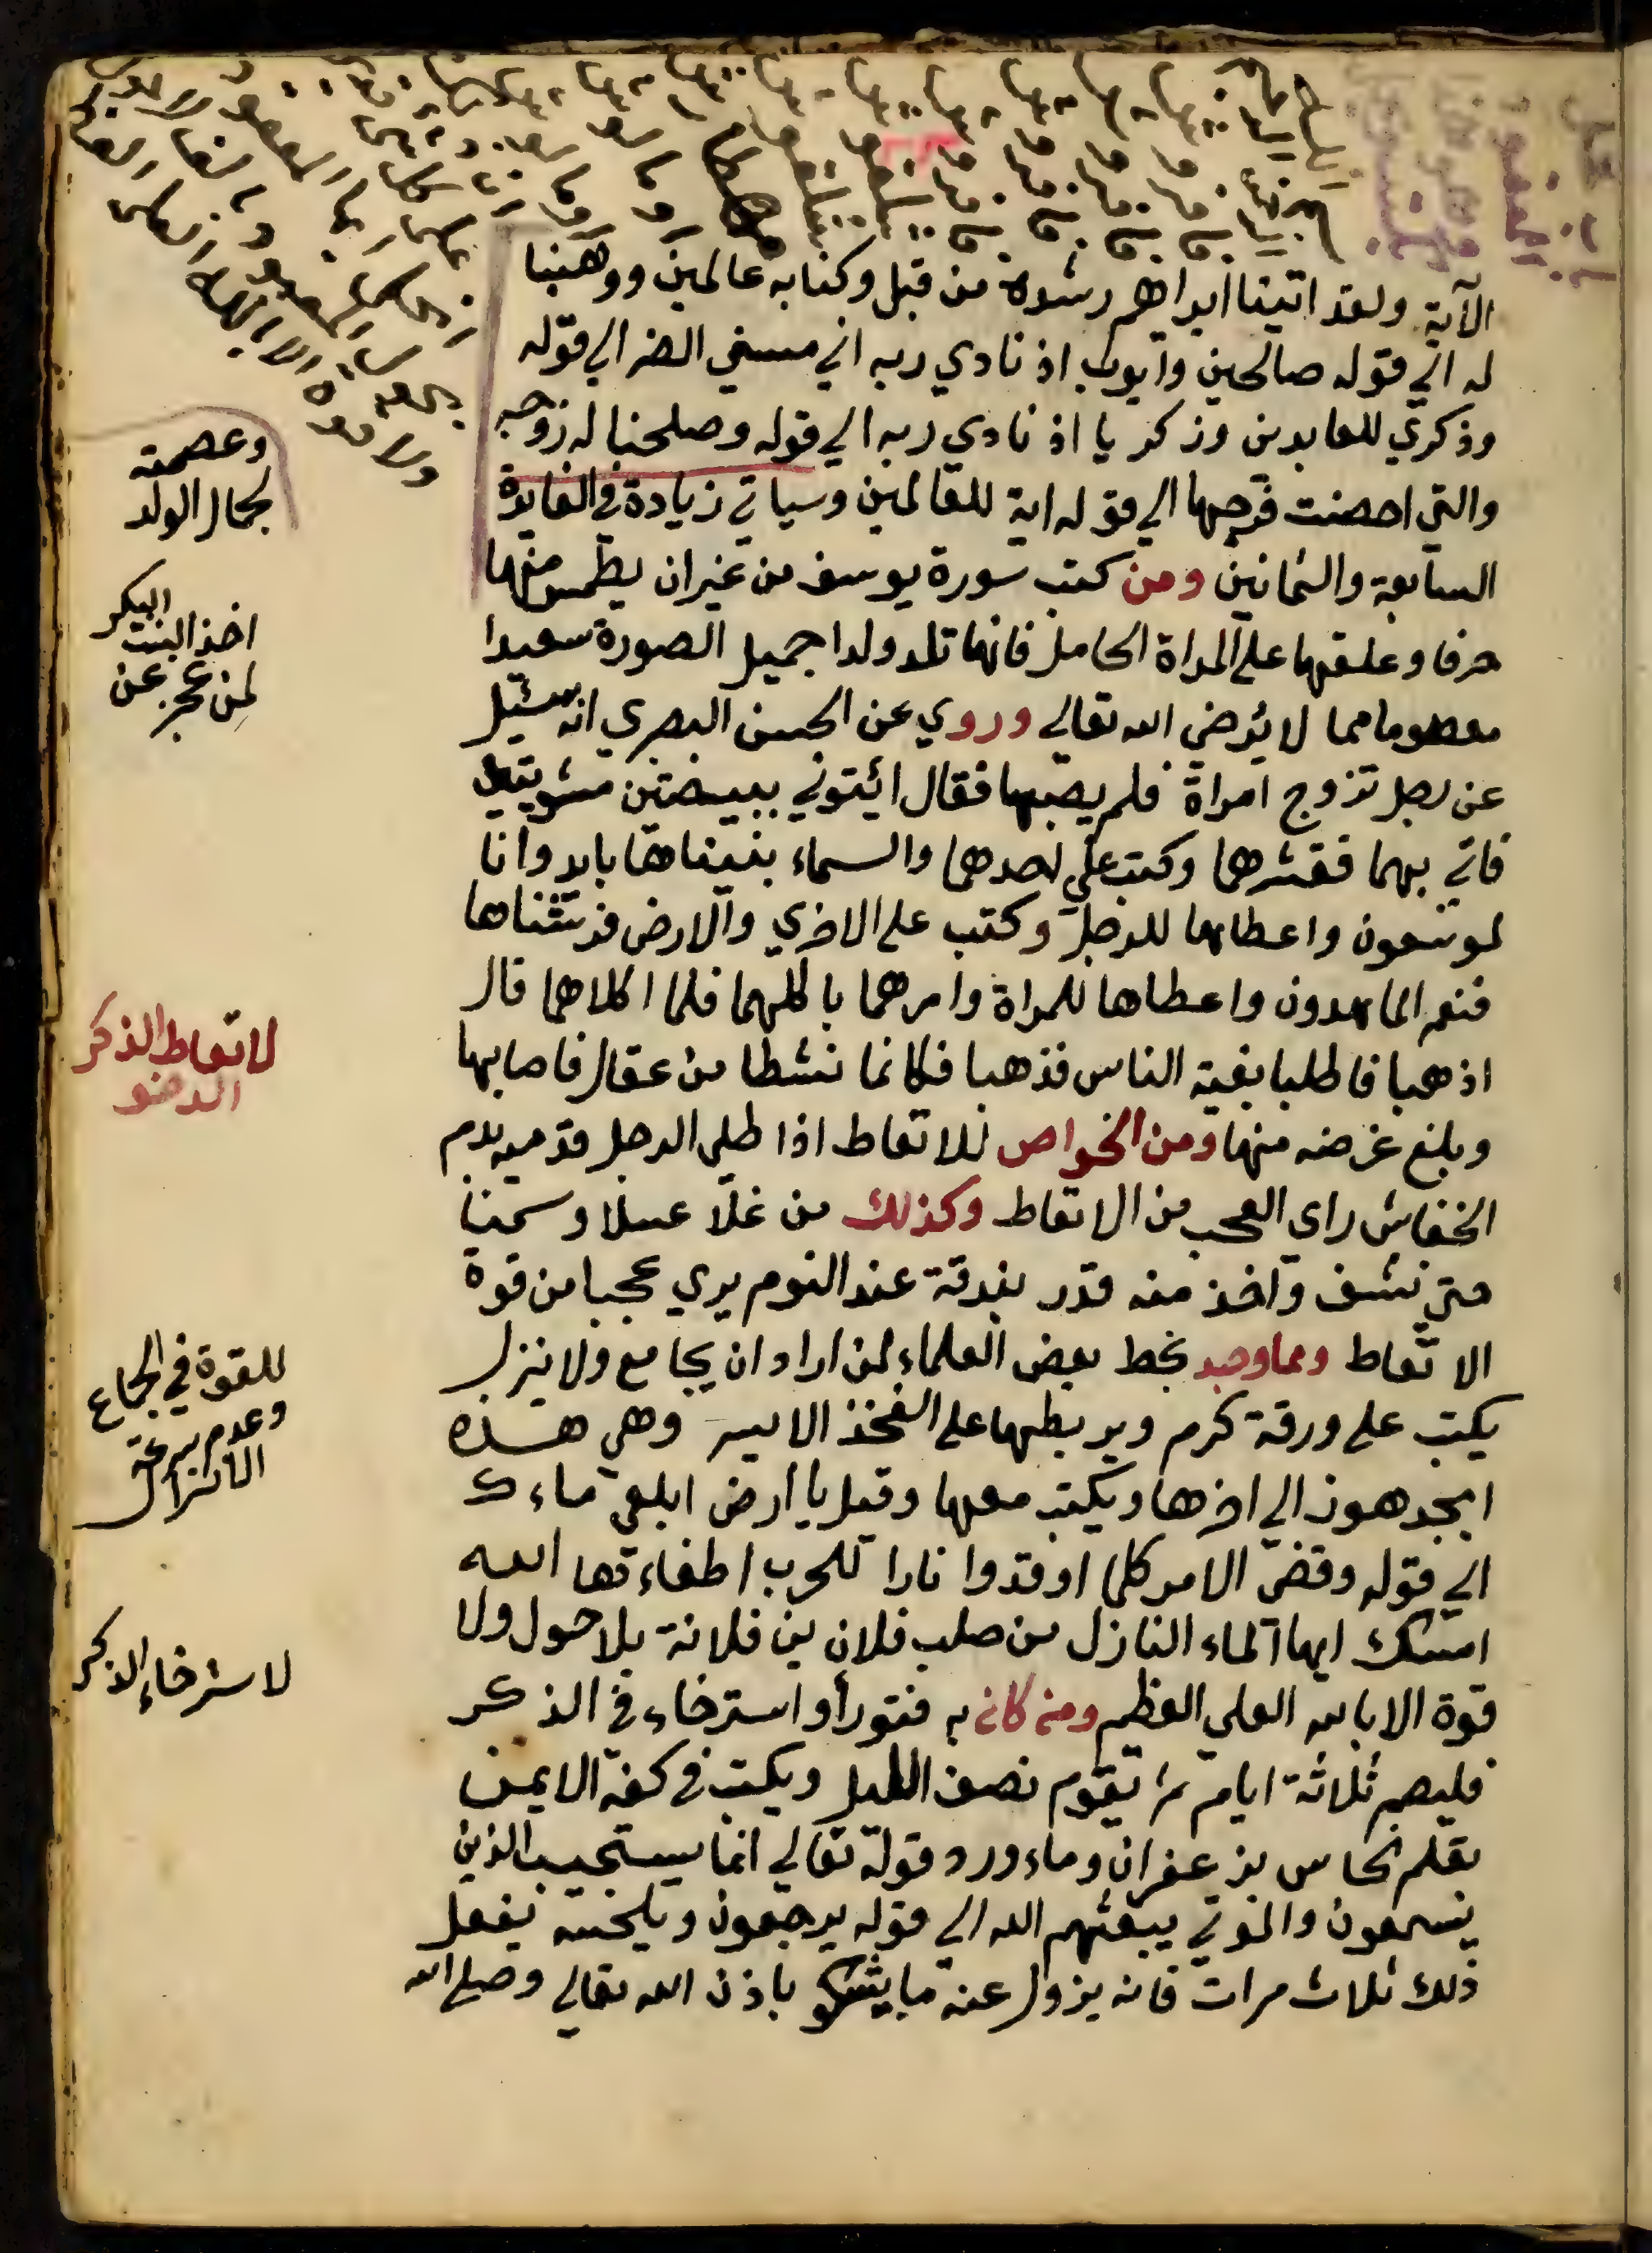 الآية ولقد اتينا ابراهيم رشده من قبل وكنا به عالمين ووهبنا
له الي قوله صالحين وايوب اذ نادي ربه اني مسني الضر الي قوله
وذكري للعابدين وزكريا اذ نادي ربه الي قوله وصلحنا له زوجه
والتي احصنت فرجها الي قوله اية للعالمين وسياتي زيادة في الفايدة
السابعة والثمانين ومن كتب سورة يوسف من غير ان يطمس منها
حرفا وعلقها على المراة الحامل فانها تلد ولدا جميل الصورة سعيدا
معصوما مما لا يرضي الله تعالي وروي عن الحسن البصري انه سئيل
عن رجل تزوج امراة فلم يصبها فقال ائتوني ببيضتين مشويتين
فاتي بهما فقشرهما وكتب علي احدهما والسماء بنيناها بايد وانا
لموسعون واعطاها للرجل وكتب على الاخري والارض فرشناها
فنعم الماهدون واعطاها للمراة وامرهما باكلهما فلما اكلاهما قال
اذهبا فاطلبا بغية الناس فذهبا فكانما نشطا من عقال فاصابها
وبلغ غرضه منها ومن الخواص للاتعاط اذا طلى الرجل قدميه بدم
الخفاش راى العجب من الاتعاط وكذلك من غلا عسلا وسمنا
حتى نشف واخذ منه قدر بندقة عند النوم يري عجبا من قوة
الاتعاط ومما وجد بخط بعض العلماء لمن اراد ان يجامع ولا ينزل
يكتب على ورقة كرم ويربطها على الفخذ الايسر وهي هذه
ابجد هوز الي اخرها ويكتب معها وقيل يا ارض ابلعي ماءك
الي قوله وقضي الامر كلما اوقدوا نارا للحرب اطفاءتها الله
امسك ايها الماء النازل من صلب فلان بن فلانة بلا حول ولا
قوة الا بالله العلي العظيم ومن كان به فتور أو استرخاء في الذكر
فليصم ثلاثة ايام ثم يقوم نصف الليل ويكتب في كفه الايمن
بقلم نحاس بزعفران وماء ورد قوله تعالي انما يستجيب الذين
يسمعون والموتي يبعثهم الله الي قوله يرجعون ويلحسه يفعل
ذلك ثلاث مرات فانه يزول عنه ما يشكو باذن الله تعالي وصلى الله
وعصمته
لجمال الولد
اخذ البنت البكر
لمن عجز عن
لاتعاط الذكر
الرخو
للقوة في الجماع
وعدم سرعة
الانزال
لاسترخاء الذكر